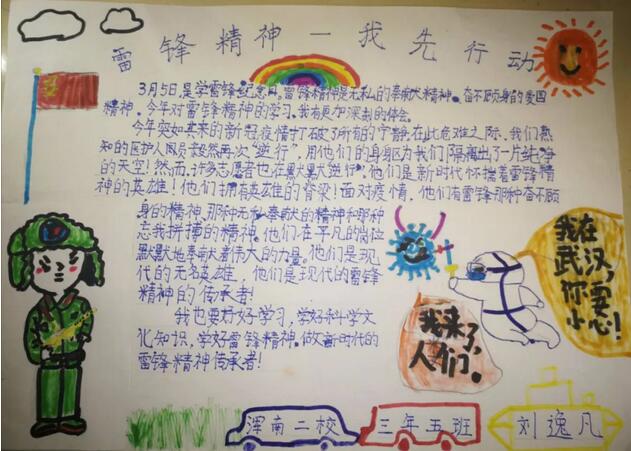 雷锋精神一我先行动
3月5日,是学雷锋纪念日,雷锋精神是无私的奉献精神。奋不顾身的爱国
精神。今年对雷锋精神的学习。我有更加深刻的体会。
今年突如其来的新冠疫情打破了所有的宁静,在此危难之际、我们熟
知的医护人员毅然再次"逆行",用他们的身躯为我们隔离出了一片纯净
的天空!然而,许多志愿者也在默默逆行。他们是新时代怀揣着雷锋精
神的英雄!他们拥有英雄的脊梁!面对疫情,他们有雷锋那种奋不顾
身的精神、那种无私奉献的精神和那种
忘我拼搏的精神。他们在平凡的岗位
默默地奉献着伟大的力量。他们是现
代的无名英雄,他们是现代的雷锋
精神的传承者!
我也要好好学习,学好科学文
化知识,学好雷锋精神。做新时代的
雷锋精神传承者!
我在
武汉,
你要
小心!
我来了,
人们。
浑南二校
三年五班
刘逸凡